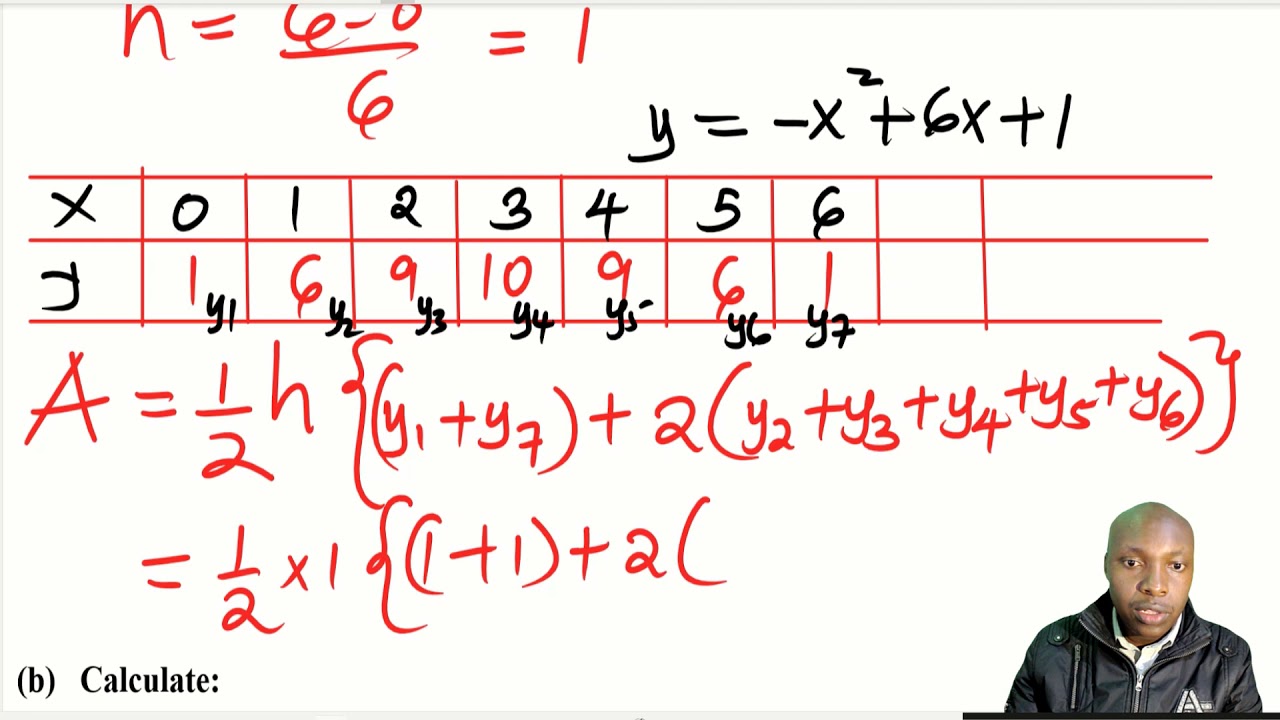 h = 6-0/6 = 1
y = -x²+6x+1
x 0 1 2 3 4 5 6
y 1 y1 6 y2 9 y3 10 y4 9 y5 6 y6 1 y7
A = 1/2 h {(y1+y7)+2(y2+y3+y4+y5+y6)}
= 1/2 x1 {(1+1)+2(
(b) Calculate: